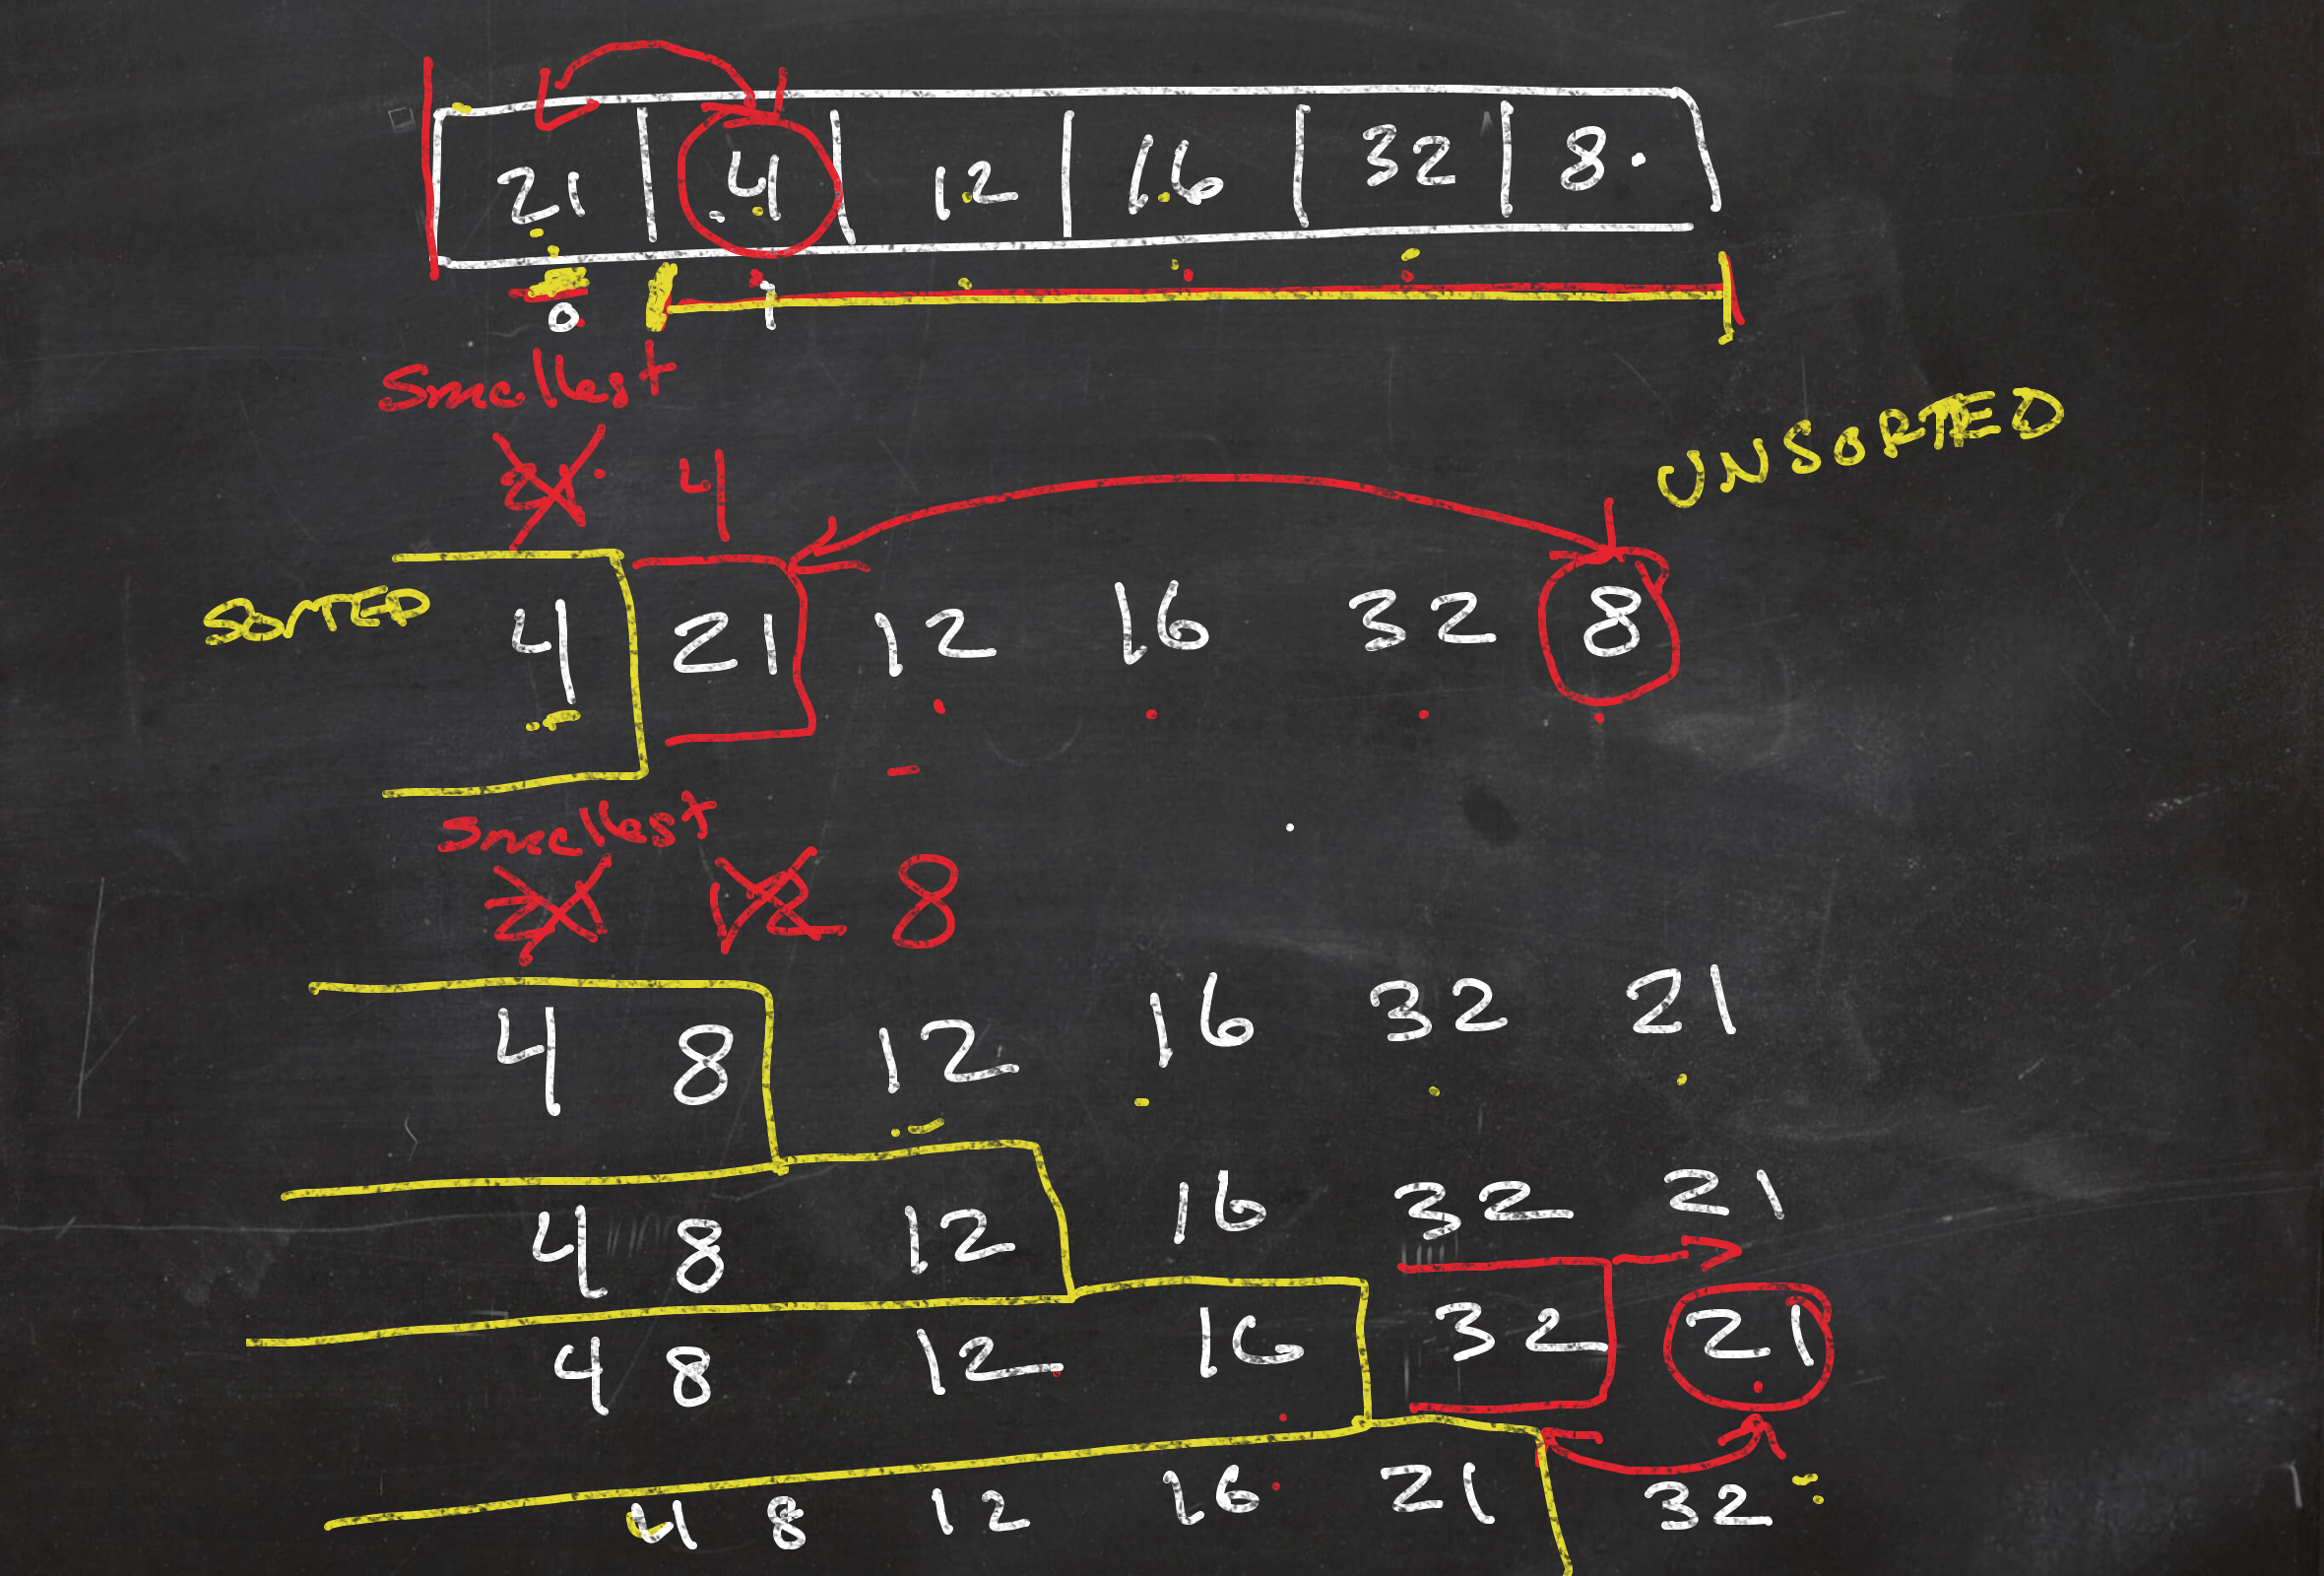 21 4 12 16 32 8
0 1
Smallest
UNSORTED
21 4
SORTED 4 21 12 16 32 8
Smallest
21 12 8
4 8 12 16 32 21
4 8 12 16 32 21
4 8 12 16 32 21
4 8 12 16 21 32